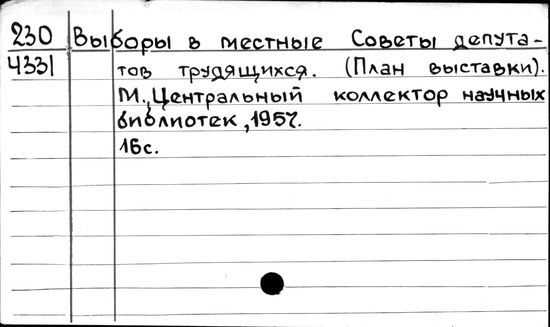 230 Выборы в местные Советы депута-
4331 тов трудящихся. (План выставки).
М., Центральный коллектор научных
библиотек, 1957.
16с.